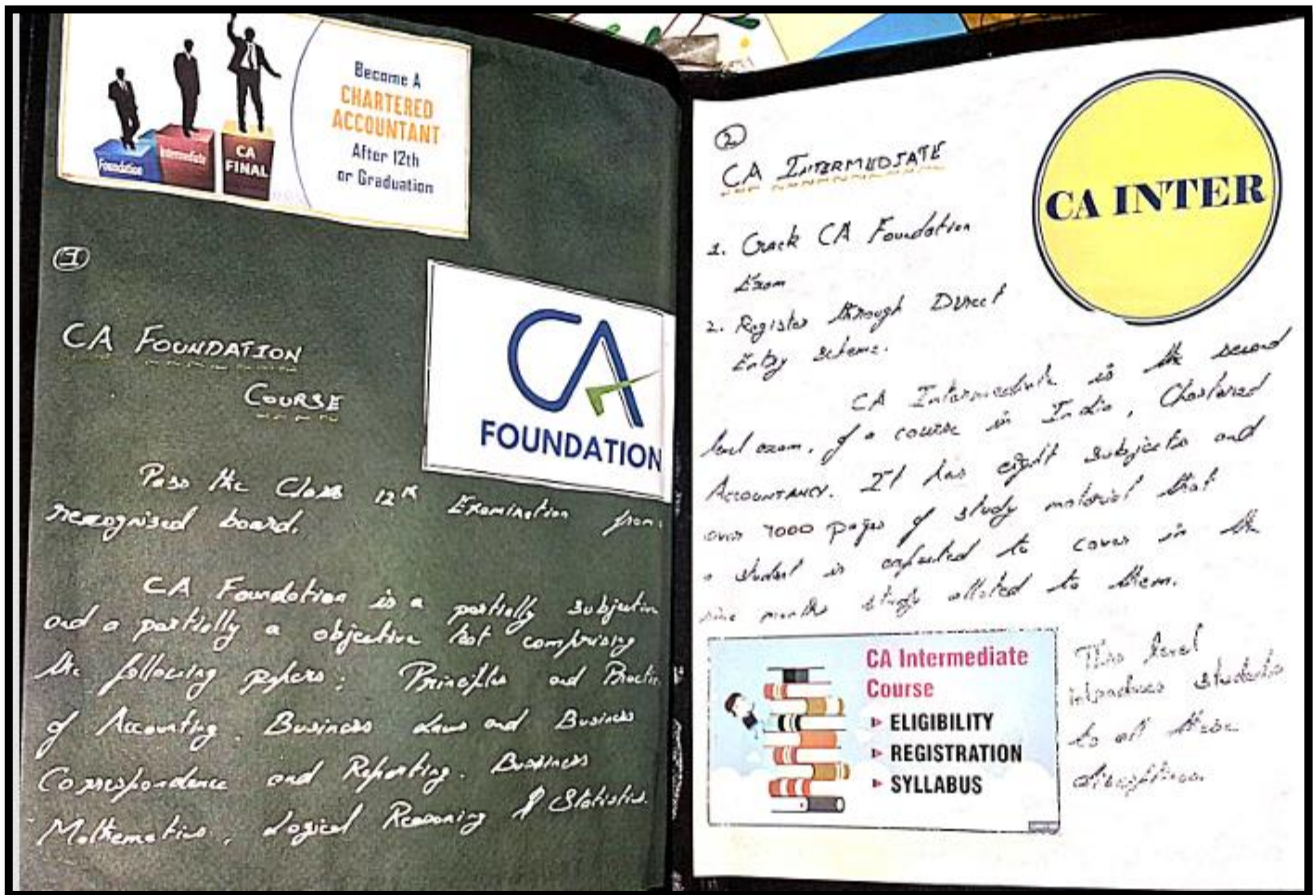 Become A
CHARTERED
ACCOUNTANT
After 12th
or Graduation
Foundation
Intermediate
CA
FINAL
1
CA FOUNDATION
COURSE
CA
FOUNDATION
Pass the Class 12th Examination from
recognised board.
CA Foundation is a partially subjective
and a partially a objective test comprising
the following papers: Principles and Practic
of Accounting. Business Laws and Business
Correspondence and Reporting. Business
Mathematics, Logical Reasoning & Statistics.
2
CA INTERMEDIATE
CA INTER
1. Crack CA Foundation
Exam
2. Register through Direct
Entry scheme.
CA Intermediate is the second
level exam, of a course in India, Chartered
ACCOUNTANCY. It has eight subjects and
over 7000 pages of study material that
a student is expected to cover in the
nine months study alloted to them.
CA Intermediate
Course
ELIGIBILITY
REGISTRATION
SYLLABUS
This level
introduces students
to all these